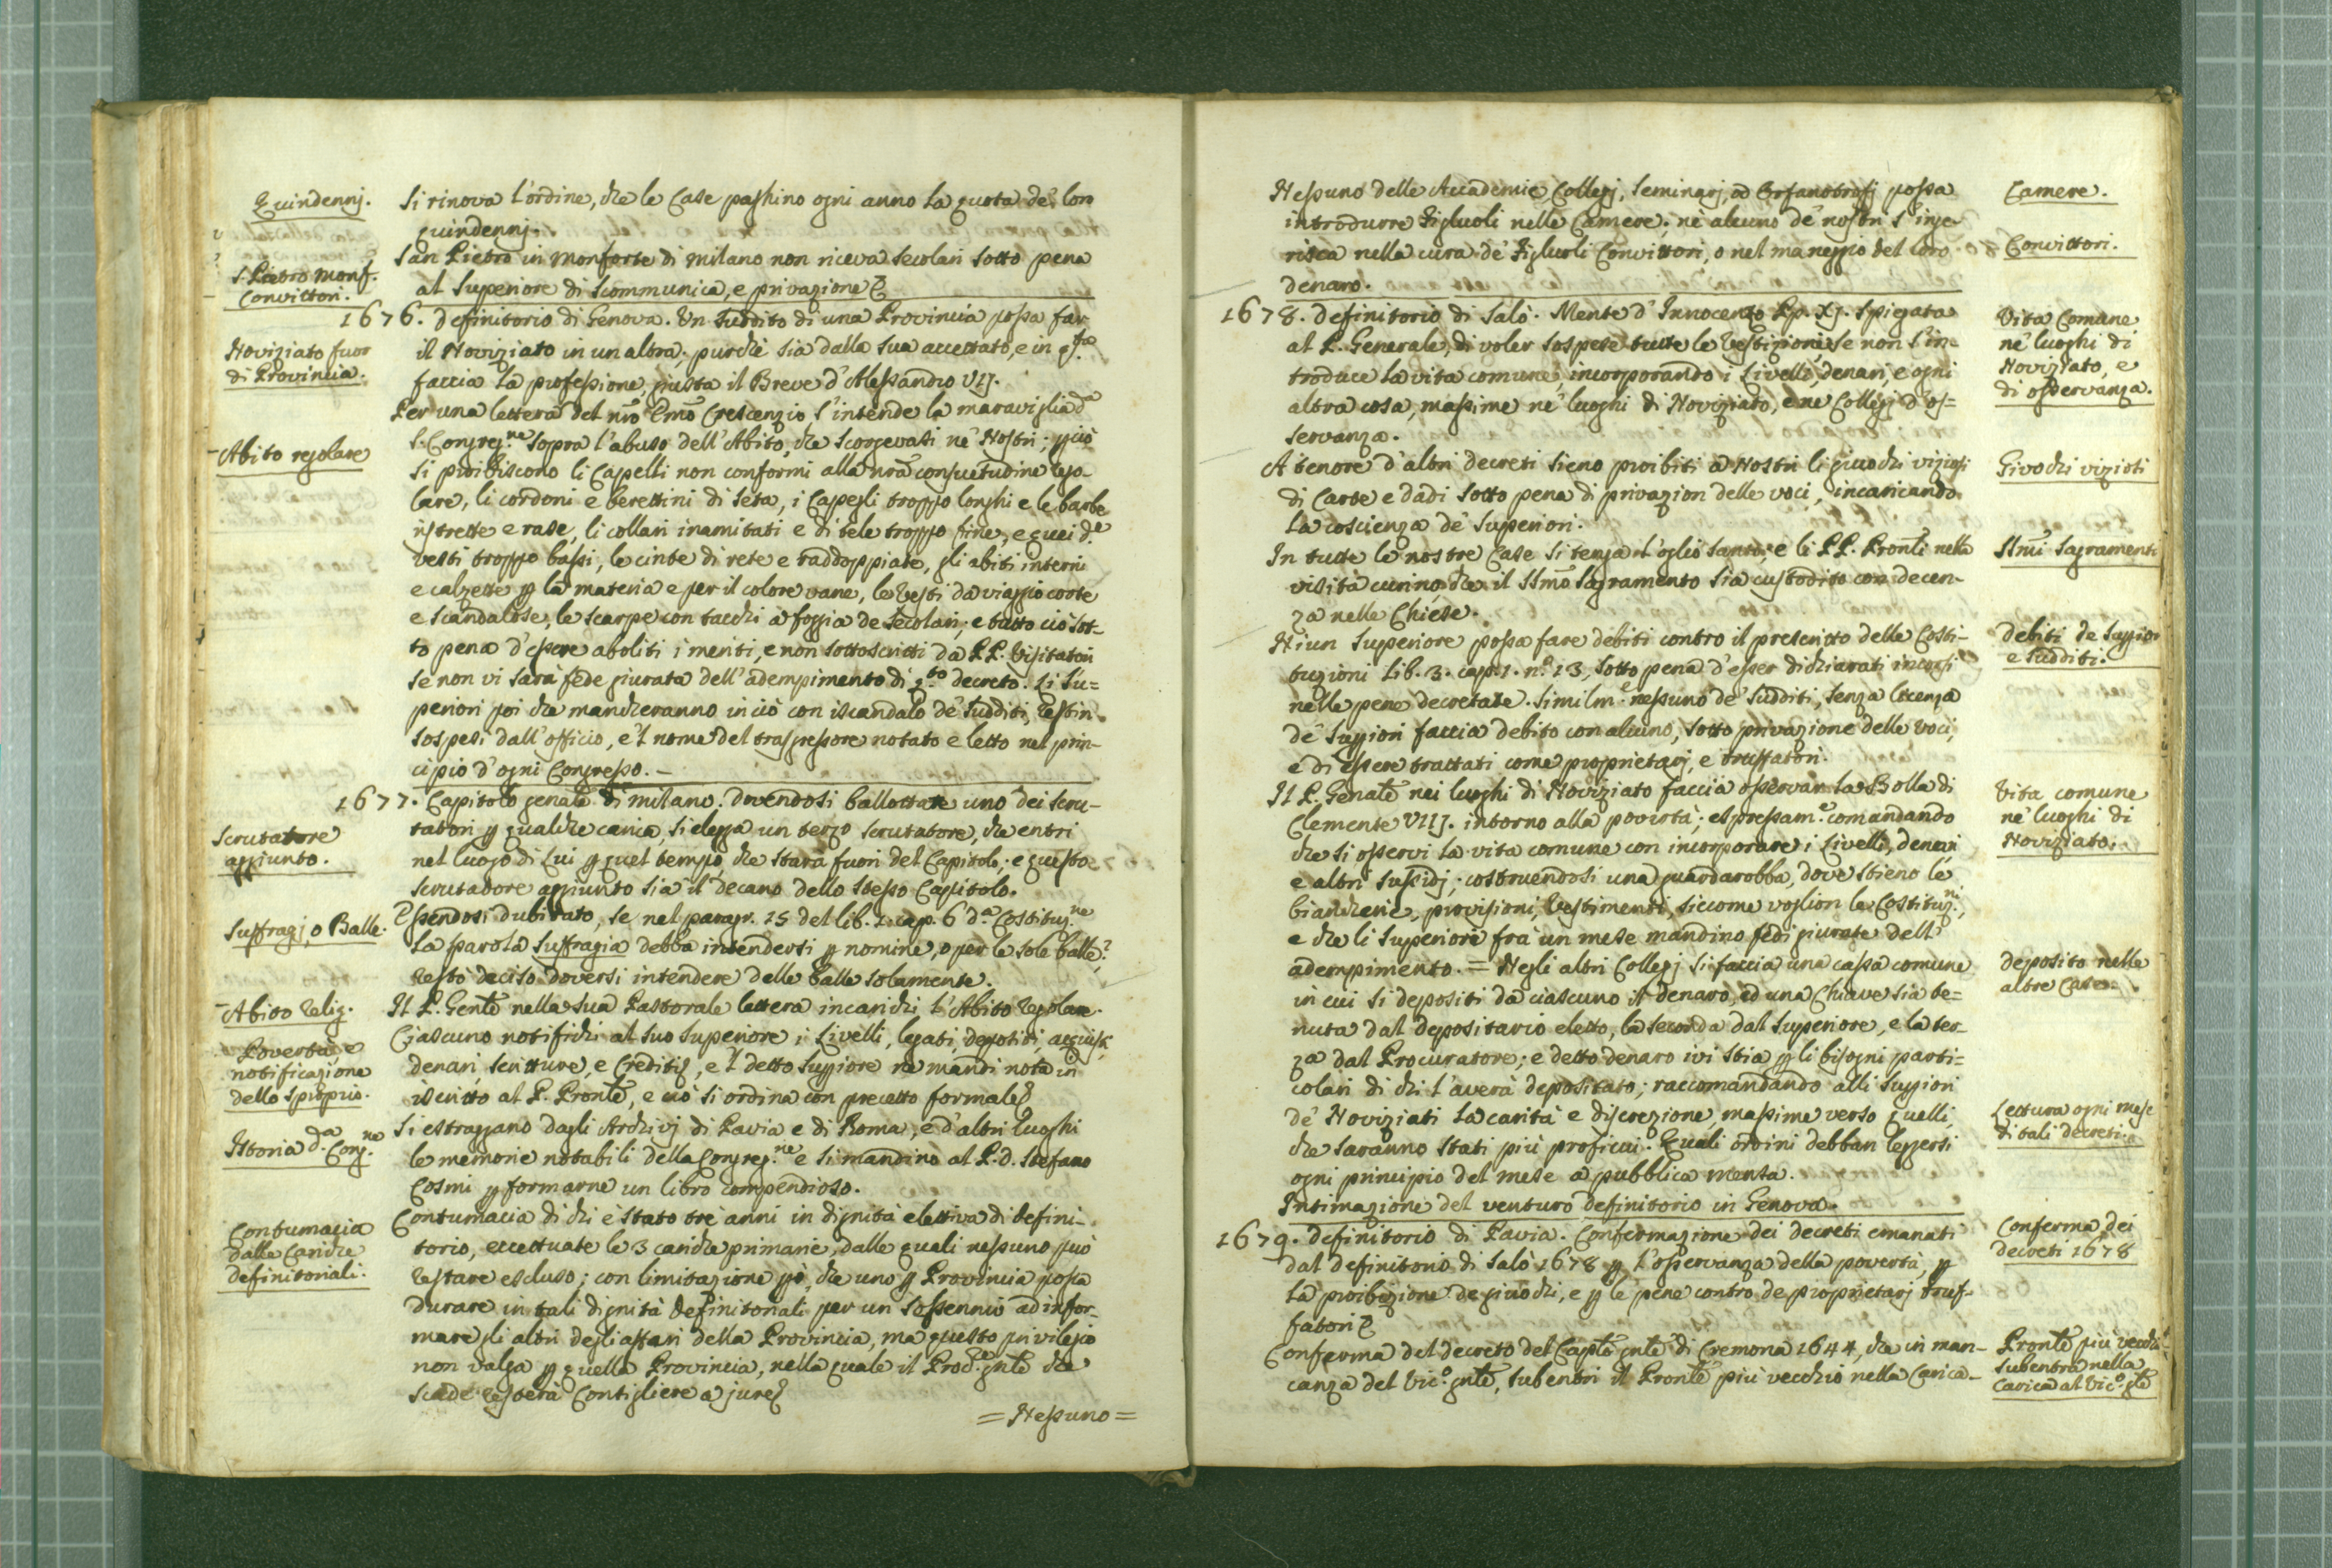 Quindennj.
Si rinova l'ordine, che le Case paghino ogni anno la quota de' loro
quindennj.
S. Pietro Monf.
Convittori.
San Pietro in Monforte di Milano non riceva secolari sotto pena
al Superiore di scommunica, e privazione
1676. Definitorio di Genova. Un Suddito di una Provincia possa far
Noviziato fuor
di Provincia.
il Noviziato in un altra, purchè sia dalla sua accettato, e in
faccia la professione giusta il Breve d'Alessandro VIJ.
Per una lettera del nr̃o Em̃o Crescenzio s'intende la maraviglia dª
Abito regolare
S. Congreg.ne sopra l'abuso dell'Abito, che scorgevasi ne' Nostri; pciò
si proibiscono li Capelli non conformi alla nrã consuetudine rego-
lare, li cordoni e berettini di seta, i Capegli troppo longhi e le barbe
ristrette e rase, li collari inamitati e di tele troppo fine, e quei d.e
vesti troppo bassi, le cinte di rete e raddoppiate, gli abiti interni
e calzette p la materia e per il colore vane, le vesti da viaggio corte
e scandalose, le scarpe con tacchi a foggia de secolari; e tutto ciò sot-
to pena d'essere aboliti i meriti, e non sottoscritti da PP. Visitatori
se non vi sarà fede giurata dell'adempimento di q.to decreto. Li Su=
periori poi che mancheranno in ciò con iscandalo de' Sudditi, restin
sospesi dall'officio, e'l nome del trasgressore notato e letto nel prin-
cipio d'ogni Congresso.
1677. Capitolo genale di Milano. Dovendosi ballottare uno dei scru-
Scrutatore
aggiunto.
tatori p qualche carica si elegga un terzo scrutatore, che entri
nel luogo di lui p quel tempo, che starà fuori del Capitolo; e questo
scrutatore aggiunto sia il decano dello stesso Capitolo.
Suffragj, o Balle.
Essendosi dubitato, se nel paragr. 15 del lib. 1. cap. 6 d.ª Costituz.ne
la parola Suffragia debba intendersi p nomine, o per le sole balle?
restò deciso doversi intendere delle balle solamente.
Abito Relig.
Il P. Genle nella sua Pastorale lettera incarichi l'Abito regolare.
Povertà, e
notificazione
dello sproprio.
Ciascuno notifichi al suo Superiore i Livelli, legati, depositi, acquisti,
denari, scritture, e crediti, e'l detto Suppiore ne mandi nota in
iscritto al P. Pronle, e ciò si ordina con precetto formale
Istoria d.ª Cong.ne
Si estraggano dagli Archivj di Pavia e di Roma, e d'altri luoghi
le memorie notabili della Congreg.ne e si mandino al P. D. Stefano
Cosmi p formarne un libro compendioso.
Contumacia
dalle Cariche
definitoriali.
Contumacia di chi è stato tre anni in dignità elettiva di defini-
torio, eccettuate le 3 cariche primarie, dalle quali nessuno può
restare escluso; con limitazione pò, che uno p Provincia possa
durare in tali dignità definitoriali per un sessennio ad infor-
mare gli altri degli affari della Provincia, ma questo privilegio
non valga p quella Provincia, nella quale il Proc.re gnle che
scade resterà Consigliere a jure
= Nessuno =
Nessuno delle Accademie Collegj, Seminarj, od Orfanotrofj possa
Camere.
introdurre Figliuoli nelle Camere: nè alcuno de' nostri s'inge-
Convittori.
risca nella cura de' Figliuoli Convittori, o nel maneggio del loro
denaro.
1678. Definitorio di Salò. Mente d'Innocenzo Pp. XJ. spiegata
Vita Comune
ne' luoghi di
Noviziato, e
di osservanza.
al P. Generale, di voler sospese tutte le Vestizioni, se non s'in-
troduce la vita comune, incorporando i Livelli, denari, e ogni
altra cosa, massime ne' luoghi di Noviziato, e ne Collegj d'os=
servanza.
A tenore d'altri decreti sieno proibiti a Nostri li giuochi viziosi
Givochi viziosi
di Carte e dadi sotto pena di privazion delle voci, incaricando
la coscienza de' Superiori.
In tutte le nostre Case si tenga l'oglio santo; e li PP. Pronli nella
SSm̃i Sagramenti
visita curino, che il SSm̃o Sagramento sia custodito con decen-
za nelle Chiese.
Niun Superiore possa fare debiti contro il prescritto delle Costi-
debiti de Suppiori
e Sudditi.
tuzioni Lib. 3. cap. 1. n.º 13, sotto pena d'esser dichiarati incorsi
nelle pene decretate. Similm.e nessuno de' Sudditi, senza licenza
de' Suppiori faccia debito con alcuno, sotto privazione delle voci,
e di essere trattati come proprietarj, e truffatori.
Il P. Genale nei luoghi di Noviziato faccia osservar la Bolla di
Vita comune
ne' luoghi di
Noviziato.
Clemente VIIJ. intorno alla povertà; espressam.e comandando
che si osservi la vita comune con incorporare i Livelli, denari
e altri sussidj; costruendosi una guardarobba, dove stieno le
biancherie, provisioni, Vestimenti, siccome voglion le Costituz.ni,
e che li Superiori frà un mese mandino fedi giurate dell'
adempimento. = Negli altri Collegj si faccia una cassa comune
deposito nelle
altre Case.
in cui si depositi da ciascuno il denaro, ed una Chiave sia te=
nuta dal depositario eletto, la seconda dal Superiore, e la ter-
za dal Procuratore; e detto denaro ivi stia p li bisogni parti=
colari di chi l'averà depositato; raccomandando alli Suppiori
de' Noviziati la carità e discrezione, massime verso quelli,
Lettura ogni mese
di tali decreti.
che saranno stati più proficui. Quali ordini debban leggersi
ogni principio del mese a pubblica mensa.
Intimazione del venturo definitorio in Genova.
1679. Definitorio di Pavia. Confermazione dei decreti emanati
Conferma dei
decreti 1678
dal definitorio di Salò 1678 p l'osservanza della povertà, p
la proibizione de giuochi, e p le pene contro de proprietarj truf-
fatori
Conferma del decreto del Caplo gnle di Cremona 1644, che in man-
Pronle più vecchio
subentra nella
carica al Vic.º gle
canza del Vic.º gnle, subentri il Pronle più vecchio nella Carica